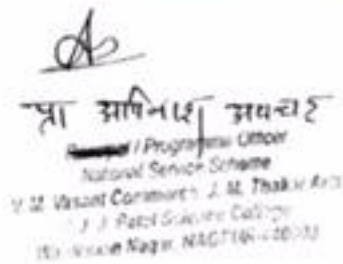 प्रा अविनाश अवचट
/ Programme Officer
National Service Scheme
V. M. Vasant Commerce, J. M. Thakur Arts
J. J. Patel Science College
Nagar, NAGPUR-